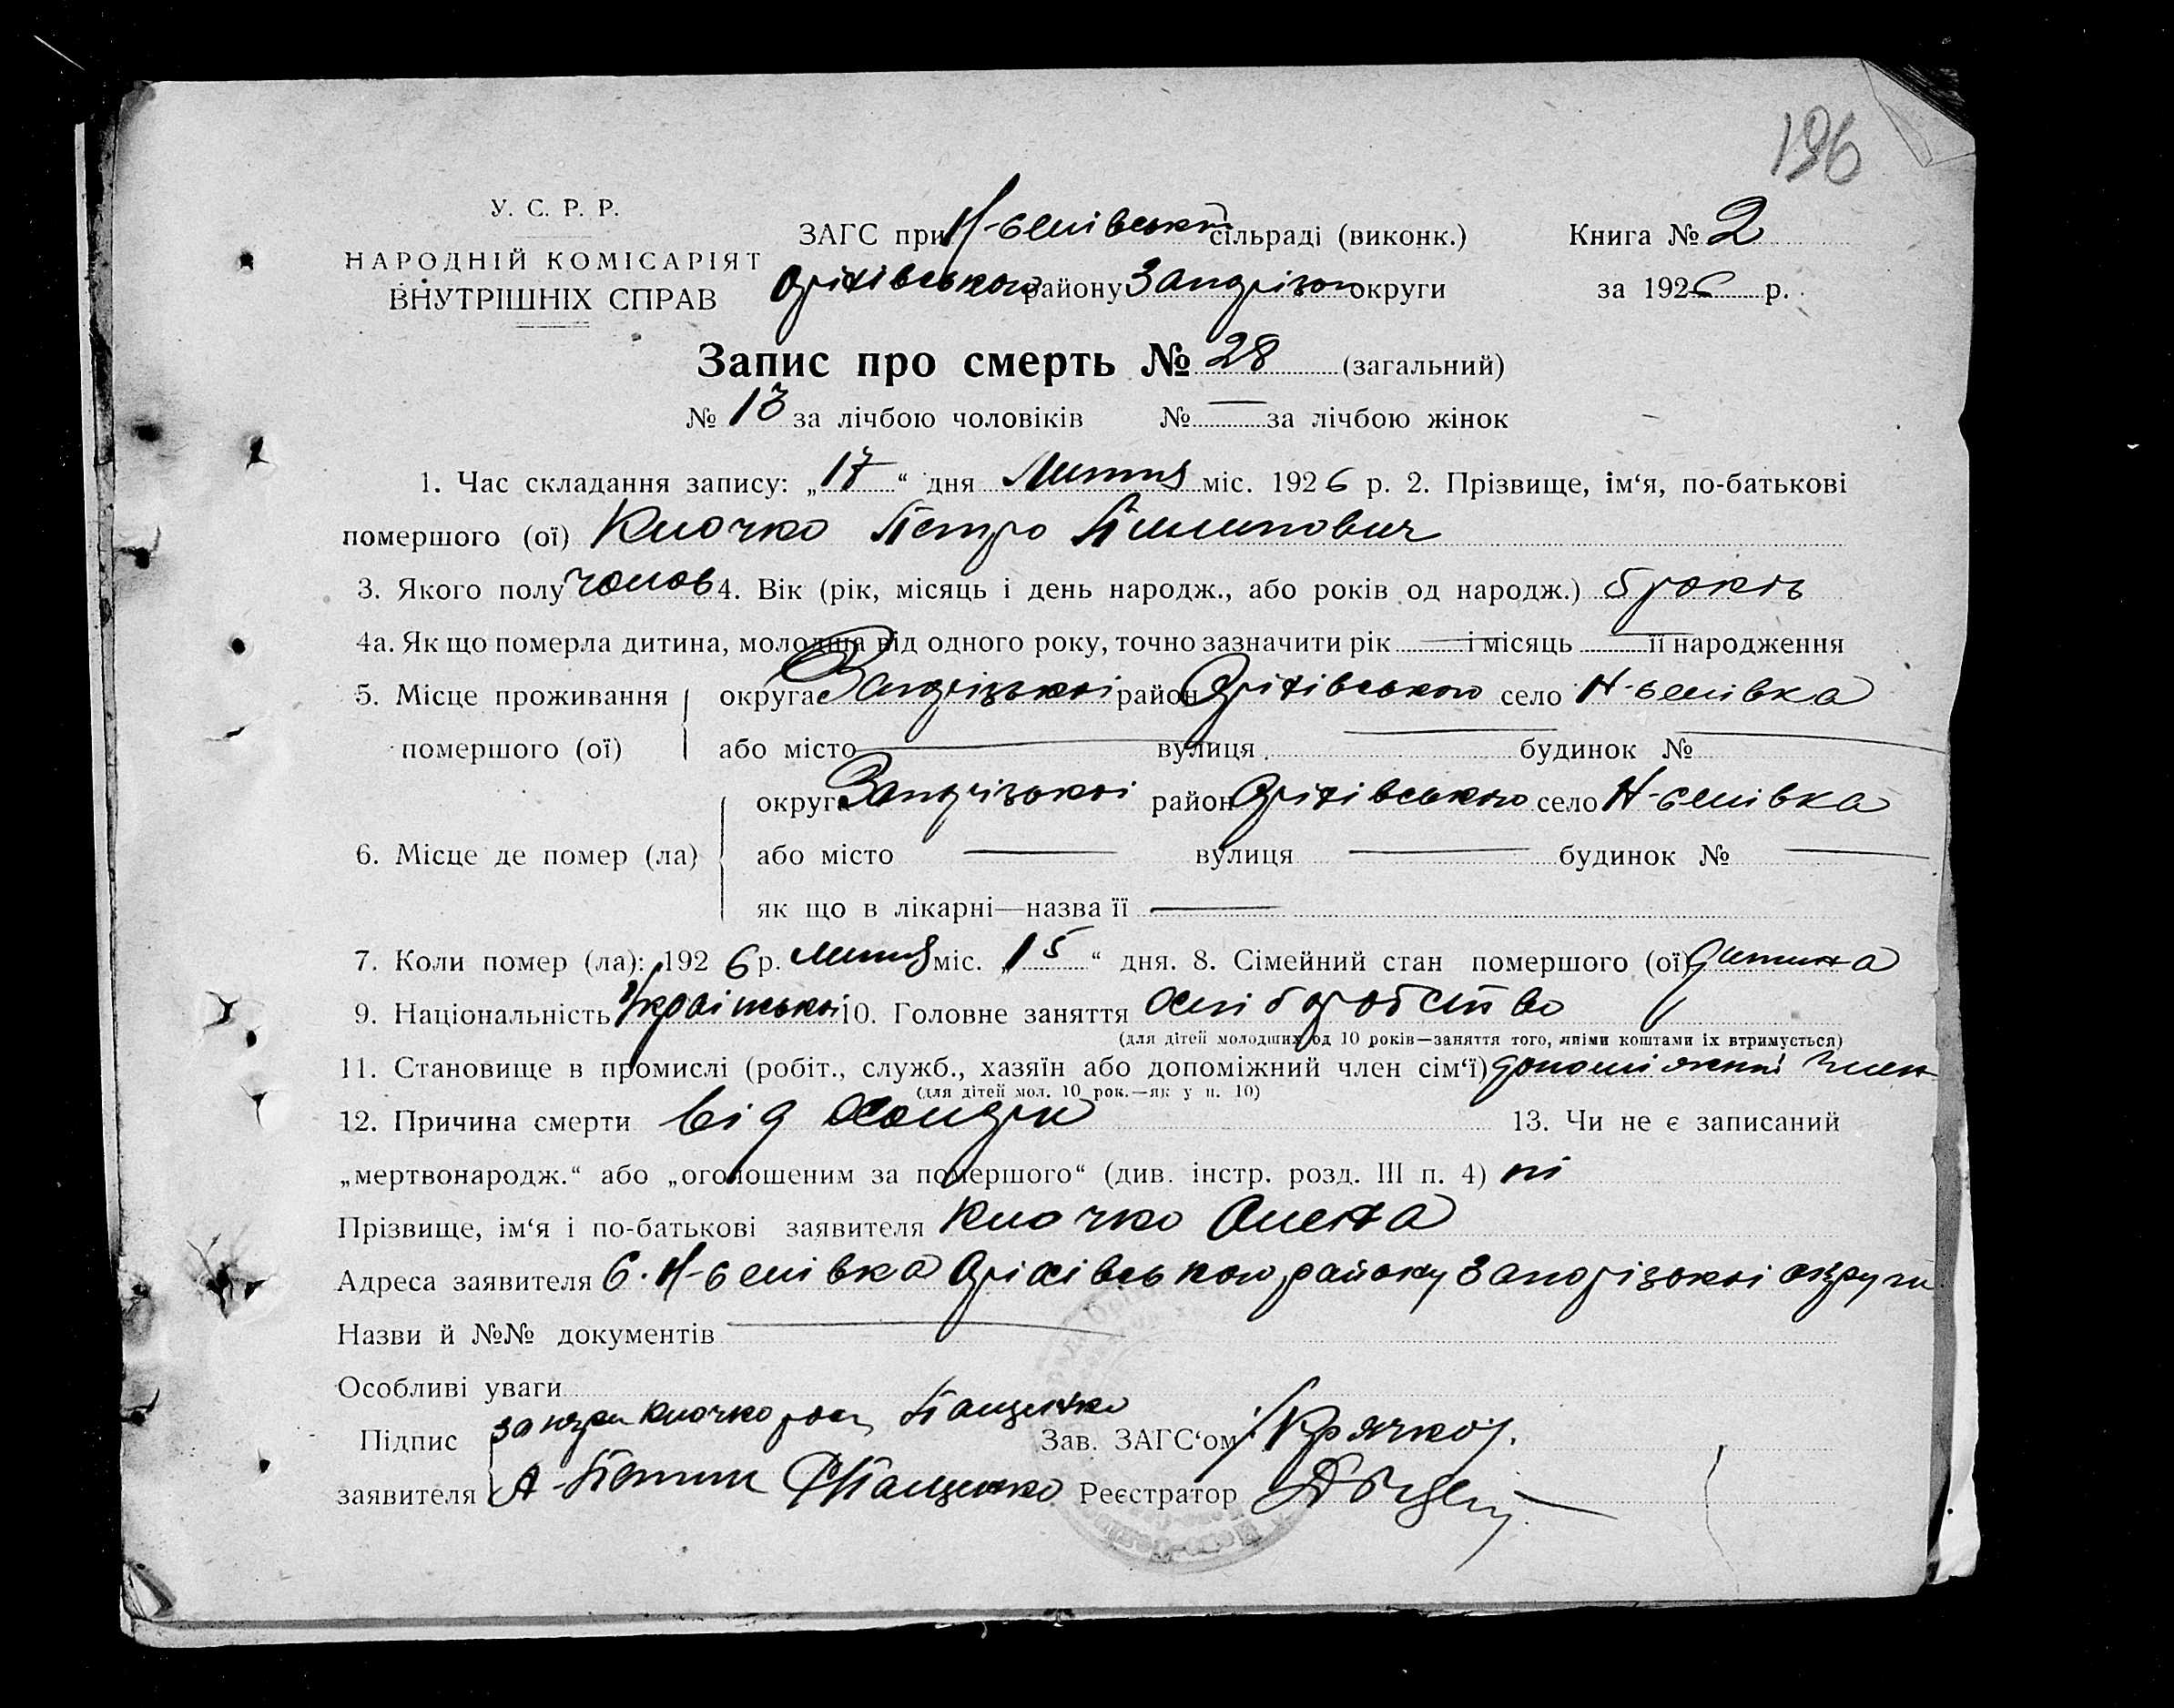 196
У. С. Р. Р.
НАРОДНІЙ КОМІСАРІЯТ
ВНУТРІШНІХ СПРАВ
ЗАГС при сільраді (виконк.)
Оріхівського району Запорізьк округи
Книга № 2
за 1926 р.
Запис про смерть № 28 (загальний)
№ 13 за лічбою чоловіків № — за лічбою жінок
1. Час складання запису: „17“ дня Липня міс. 1926 р. 2. Прізвище, ім‘я, по-батькові
помершого (ої) Клочко Петро Пилипович
3. Якого полу чолов 4. Вік (рік, місяць і день народж., або років од народж.) 5 років
4а. Як що померла дитина, молодша від одного року, точно зазначити рік — і місяць — її народження
5. Місце проживання округа Запорізької район Оріхівського село
помершого (ої) або місто — вулиця — будинок № —
округа Запорізької район Оріхівського село
6. Місце де помер (ла) або місто — вулиця — будинок № —
як що в лікарні—назва її —
7. Коли помер (ла): 1926 р. липня міс. „15“ дня. 8. Сімейний стан помершого (ої) дитина
9. Національність Української 10. Головне заняття хліборобство
(для дітей молодших од 10 років—заняття того, якіми коштами їх втримується)
11. Становище в промислі (робіт., служб., хазяїн або допоміжний член сім‘ї) допоміжний член
(для дітей мол. 10 рок.—як у п. 10)
12. Причина смерти від 13. Чи не є записаний
„мертвонародж.“ або „оголошеним за помершого“ (див. інстр. розд. III п. 4) ні
Прізвище, ім‘я і по-батькові заявителя Клочко Олена
Адреса заявителя с. Оріхівського району Запорізької округи
Назви й №№ документів —
Особливі уваги
Підпис Клочко Пащенко Зав. ЗАГС‘ом
заявителя Пащенко Реєстратор